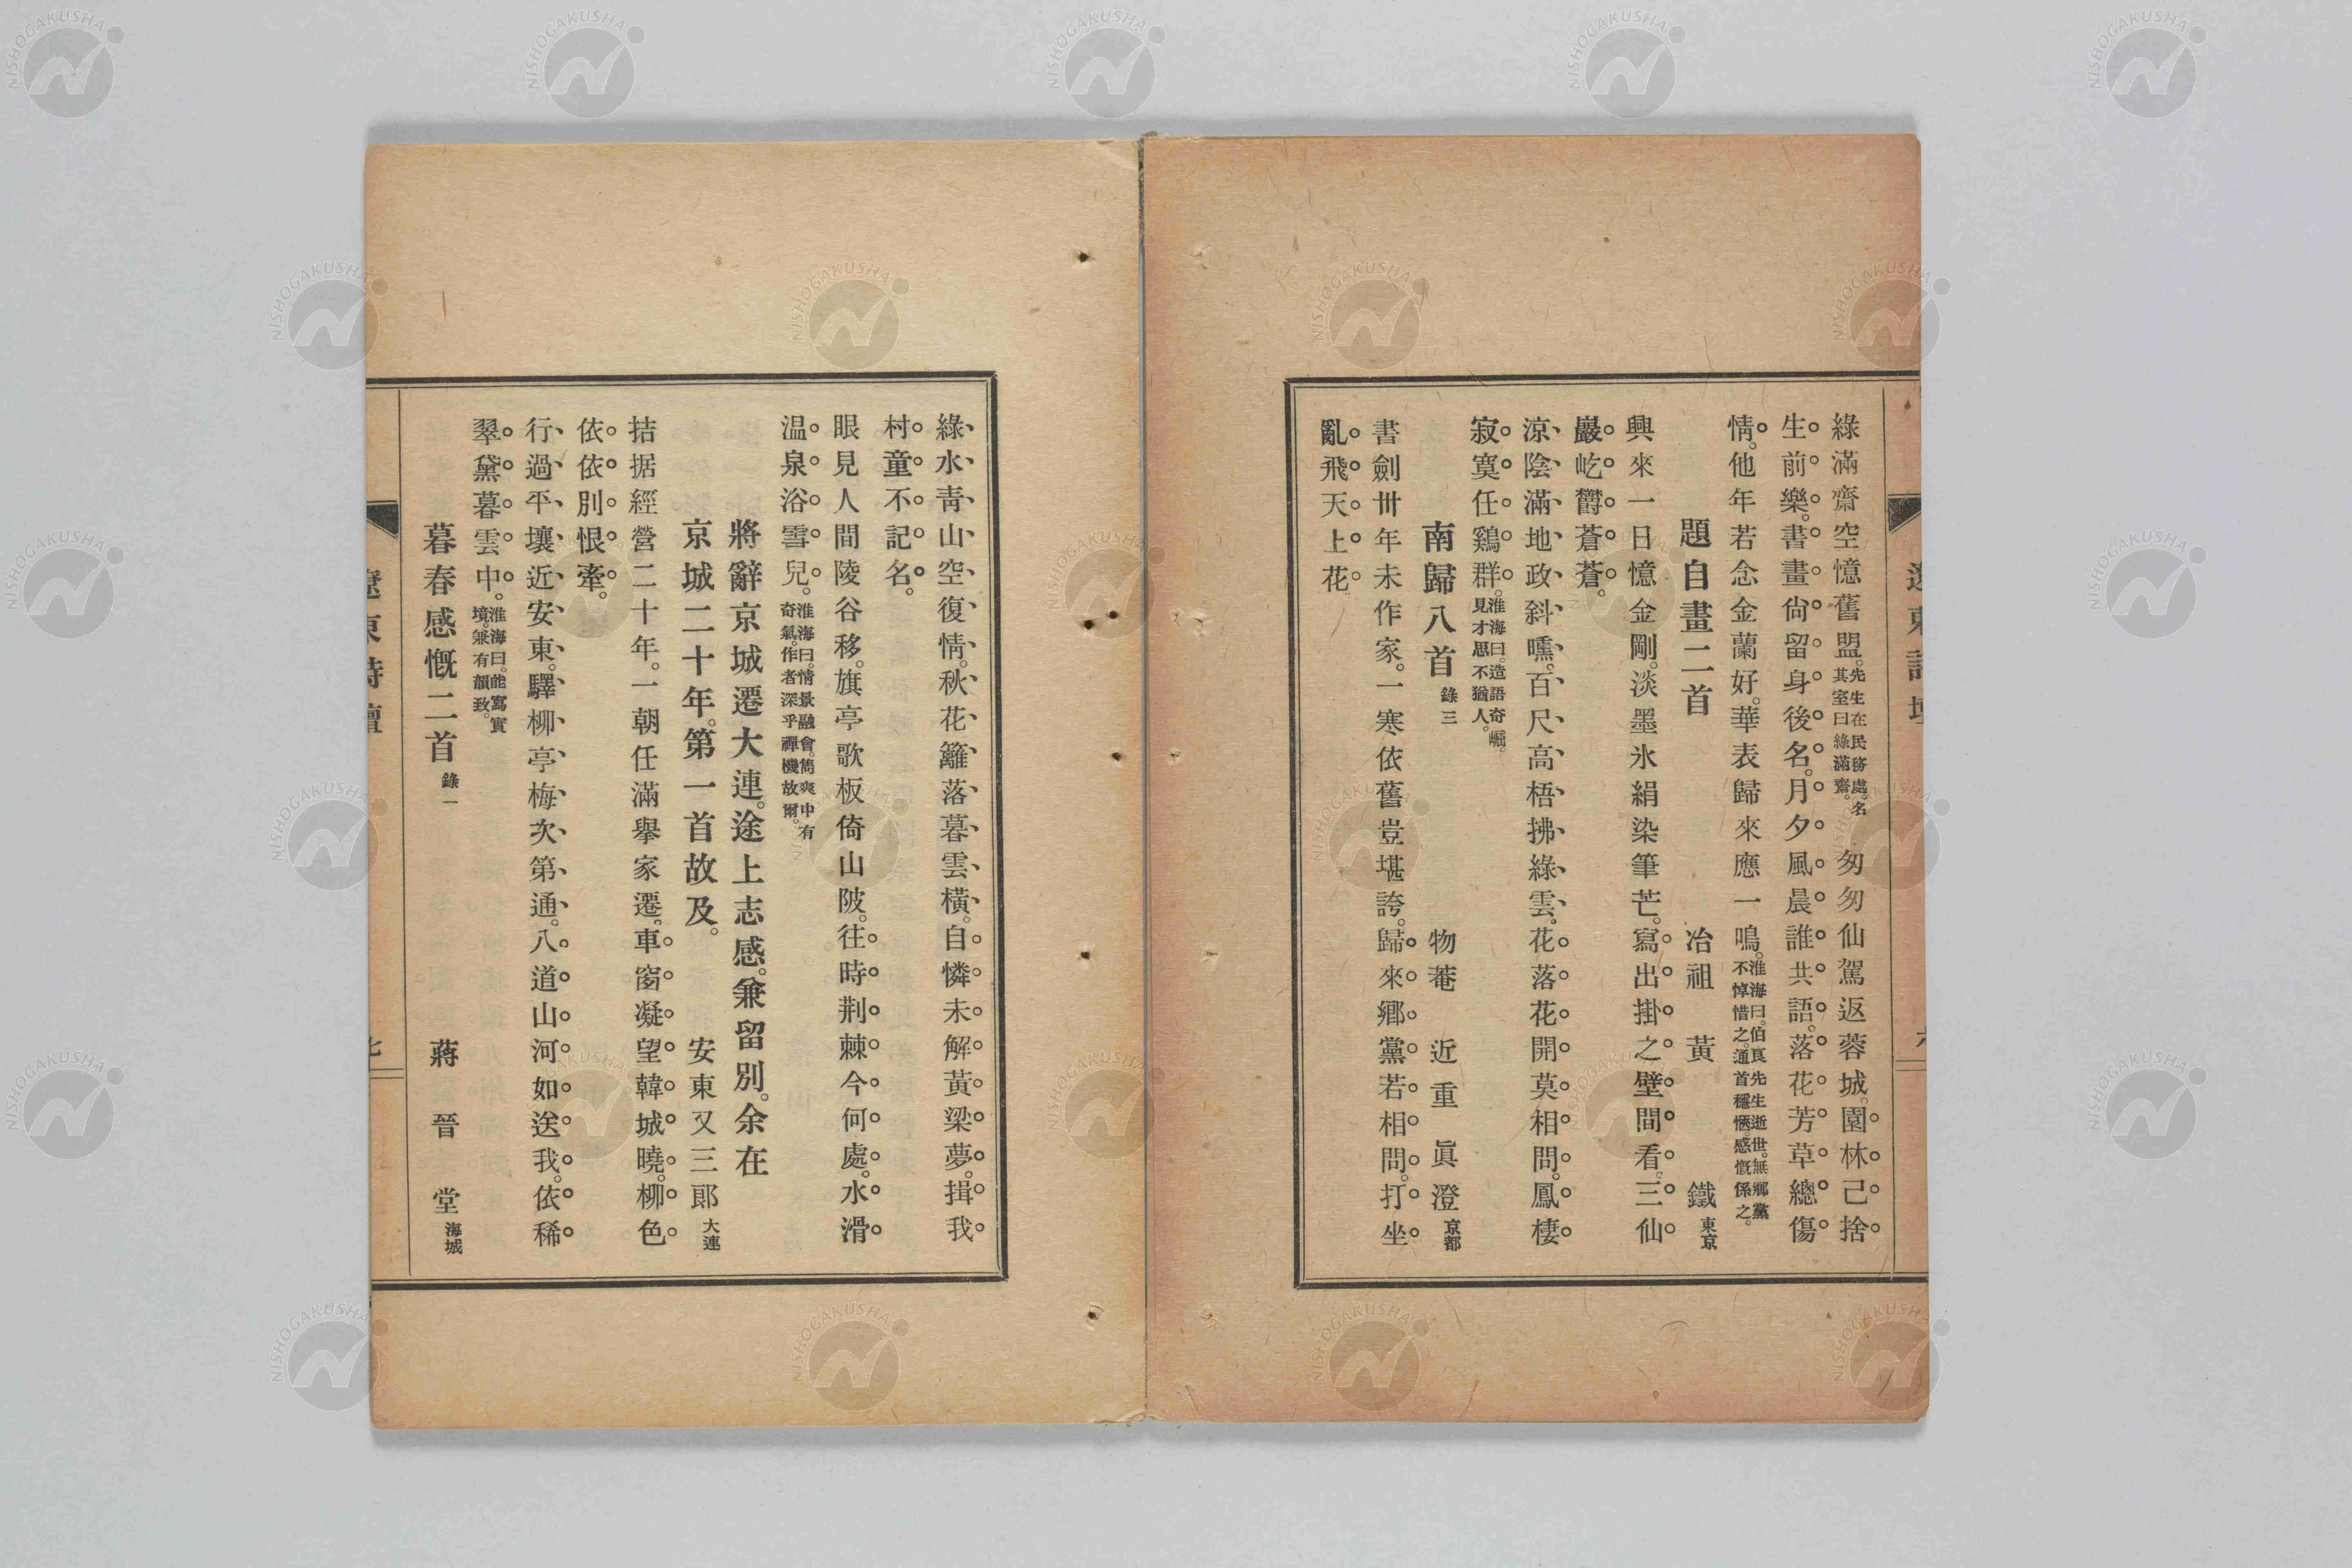 綠滿齋空憶舊盟。先生在民務處。名其室曰綠滿齋。匆匆仙駕返蓉城。園林己捨
生前樂。書畫尙留身後名。月夕風晨誰共語。落花芳草總傷
情。他年若念金蘭好。華表歸來應一鳴。淮海曰。伯良先生逝世。無鄉黨不悼惜之。通首穩愜。感慨係之。
題自畫二首 冶祖 黃 鐵 東京
興來一日憶金剛。淡墨氷絹染筆芒。寫出掛之壁間看。三仙
巖屹欝蒼蒼。
涼陰滿地政斜曛。百尺高梧拂綠雲。花落花開莫相問。鳳棲
寂寞任鷄群。淮海曰。造語奇崛。見才思不猶人。
南歸八首 錄三 物菴 近重 眞澄 京都
書劍卅年未作家。一寒依舊豈堪誇。歸來鄉黨若相問。打坐
亂飛天上花。
遼東詩壇
綠水靑山空復情。秋花籬落暮雲橫。自憐未解黃梁夢。揖我
村童不記名。
眼見人間陵谷移。旗亭歌板倚山陂。往時荆棘今何處。水滑
温泉浴雪兒。淮海曰。情景融會。雋爽中有奇氣。作者深乎禪機故爾。
將辭京城遷大連。途上志感。兼留別。余在
京城二十年。第一首故及。 安東又三郞 大連
拮据經營二十年。一朝任滿擧家遷。車窗凝望韓城曉。柳色
依依別恨牽。
行過平壤近安東。驛柳亭梅次第通。八道山河如送我。依稀
翠黛暮雲中。淮海曰。能寫實境。兼有韻致。
暮春感慨二首 錄一 蔣 晉 堂 海城
遼東詩壇
七